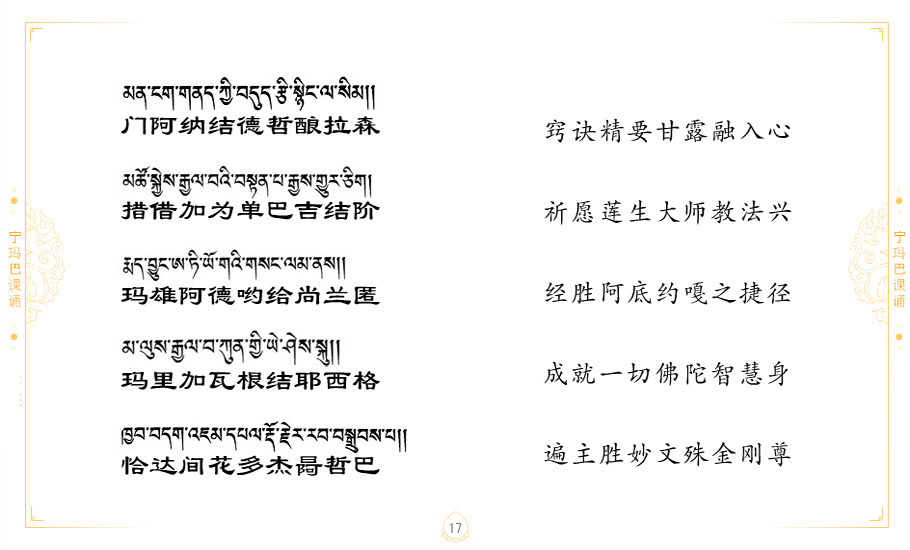 མན་ངག་གནད་ཀྱི་བདུད་རྩི་སྙིང་ལ་སིམ།།
门阿纳结德哲酿拉森
窍诀精要甘露融入心
མཚོ་སྐྱེས་རྒྱལ་བའི་བསྟན་པ་རྒྱས་གྱུར་ཅིག།
措借加为单巴吉结阶
祈愿莲生大师教法兴
རྨད་བྱུང་ཨ་ཏི་ཡོ་གའི་གསང་ལམ་ནས།།
玛雄阿德哟给尚兰匿
经胜阿底约嘎之捷径
མ་ལུས་རྒྱལ་བ་ཀུན་གྱི་ཡེ་ཤེས་སྐུ།།
玛里加瓦根结耶西格
成就一切佛陀智慧身
ཁྱབ་བདག་འཇམ་དཔལ་རྡོ་རྗེར་རབ་བསྒྲུབས་པ།།
恰达间花多杰哥哲巴
遍主胜妙文殊金刚尊
宁玛巴课诵
宁玛巴课诵
17